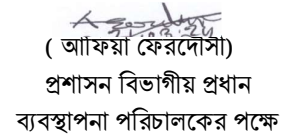 ( আফিয়া ফেরদৌসী)
প্রশাসন বিভাগীয় প্রধান
ব্যবস্থাপনা পরিচালকের পক্ষে